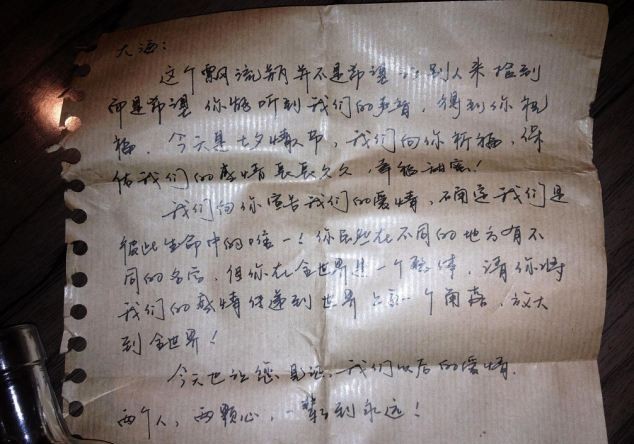 大海：
这个飘流瓶并不是希望让别人来捡到
而是希望你能听到我们的声音，得到你祝
福，今天是七夕情人节，我们向你祈福，保
佑我们的感情长长久久，幸福甜蜜！
我们向你宣告我们的爱情，确定我们是
彼此生命中的唯一！你虽然在不同的地方有不
同的名字，但你在全世界是一个整体，请你将
我们的感情传递到世界上每一个角落，放大
到全世界！
今天也让您见证，我们以后的爱情，
两个人，两颗心，一辈到永远！